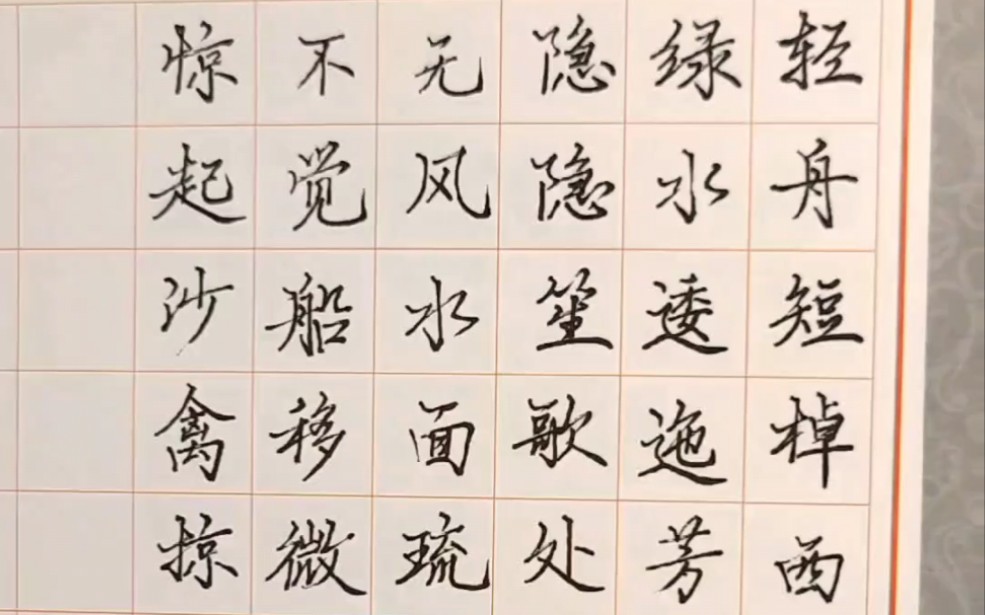 轻舟短棹西
绿水逶迤芳
隐隐笙歌处
无风水面琉
不觉船移微
惊起沙禽掠